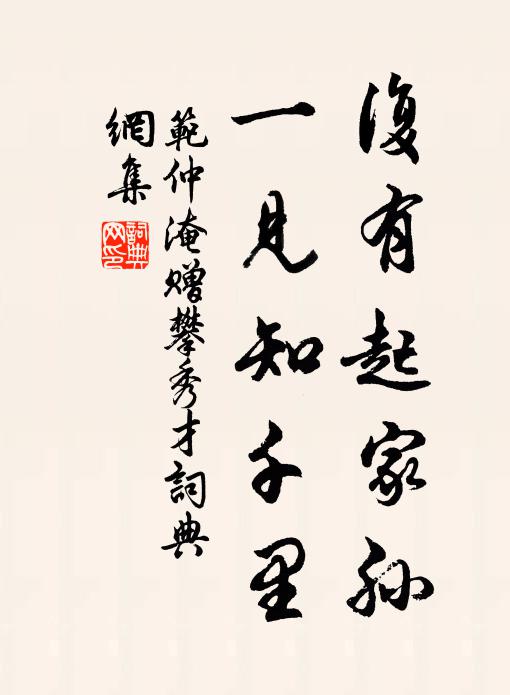 復有起家孫
一見知千里
範仲淹贈攀秀才詞典
網集
詞典
网印